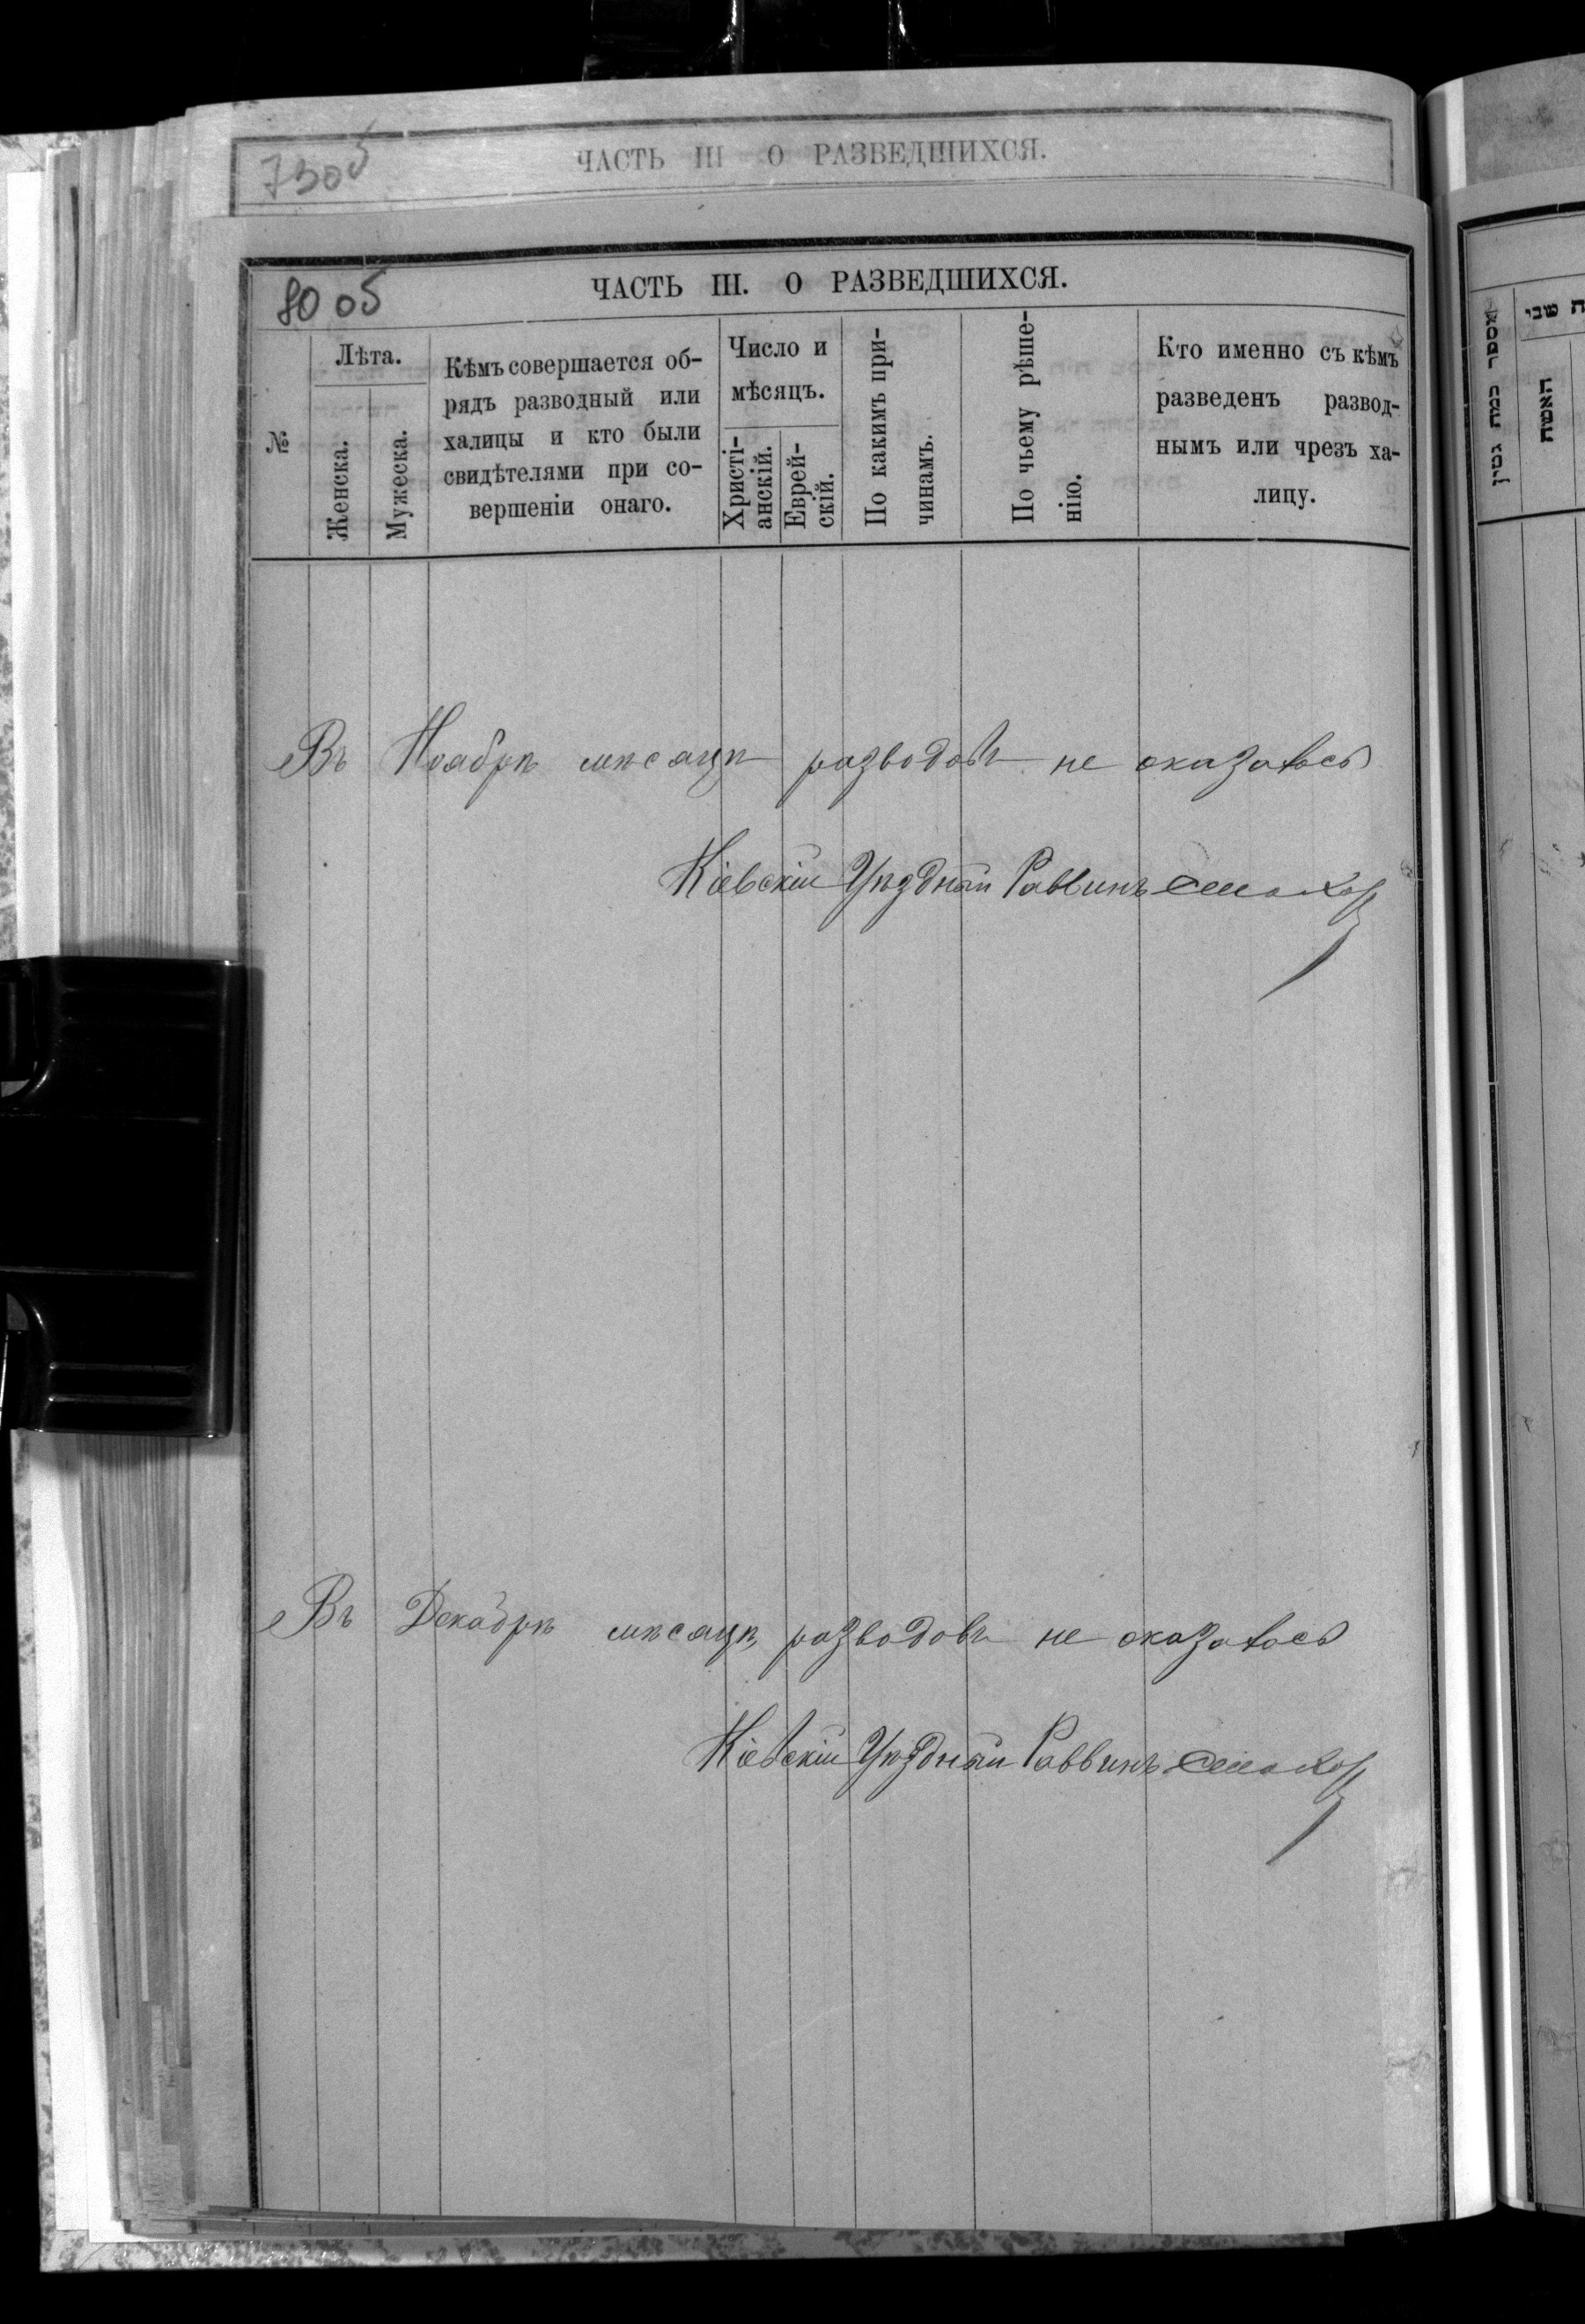 730б
ЧАСТЬ III О РАЗВЕДШИХСЯ.
80 об
ЧАСТЬ III. О РАЗВЕДШИХСЯ.
№
Лѣта.
Женска.
Мужеска.
Кѣмъ совершается об-
рядъ разводный или
халицы и кто были
свидѣтелями при со-
вершеніи онаго.
Число и
мѣсяцъ.
Христі-
анскій.
Еврей-
скій.
По какимъ при-
чинамъ.
По чьему рѣше-
нію.
Кто именно съ кѣмъ
разведенъ развод-
нымъ или чрезъ ха-
лицу.
Въ Ноябрѣ мѣсяцѣ разводовъ не оказалось
Кіевскій Уѣздный Раввинъ
Въ Декабрѣ мѣсяцѣ, разводовъ не оказалось
Кіевскій Уѣздный Раввинъ
מספר כמה גטין
האשה